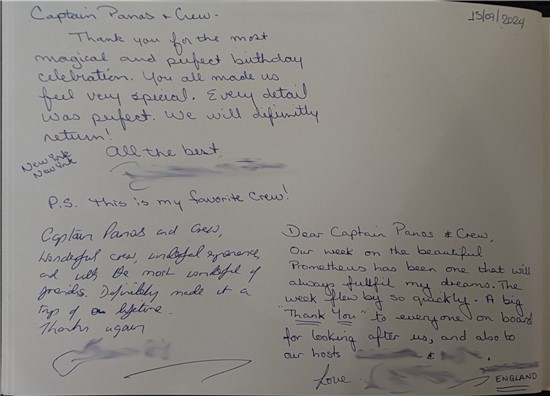 Captain Panas & Crew.
15/09/2024
Thank you for the most
magical and perfect birthday
celebration. You all made us
feel very special. Every detail
was perfect. We will definitly
return!
All the best
New York
New York
P.S. this is my favorite Crew!
Captain Panas and Crew,
Wonderful crew, wonderful experience,
and with the most wonderful of
friends. Definitely made it a
trip of a lifetime.
Thanks again
Dear Captain Panas & Crew,
Our week on the beautiful
Prometheus has been one that will
always fullfil my dreams. The
week flew by so quickly. A big
"Thank You" to everyone on board
for looking after us, and also to
our hosts &
Love
ENGLAND